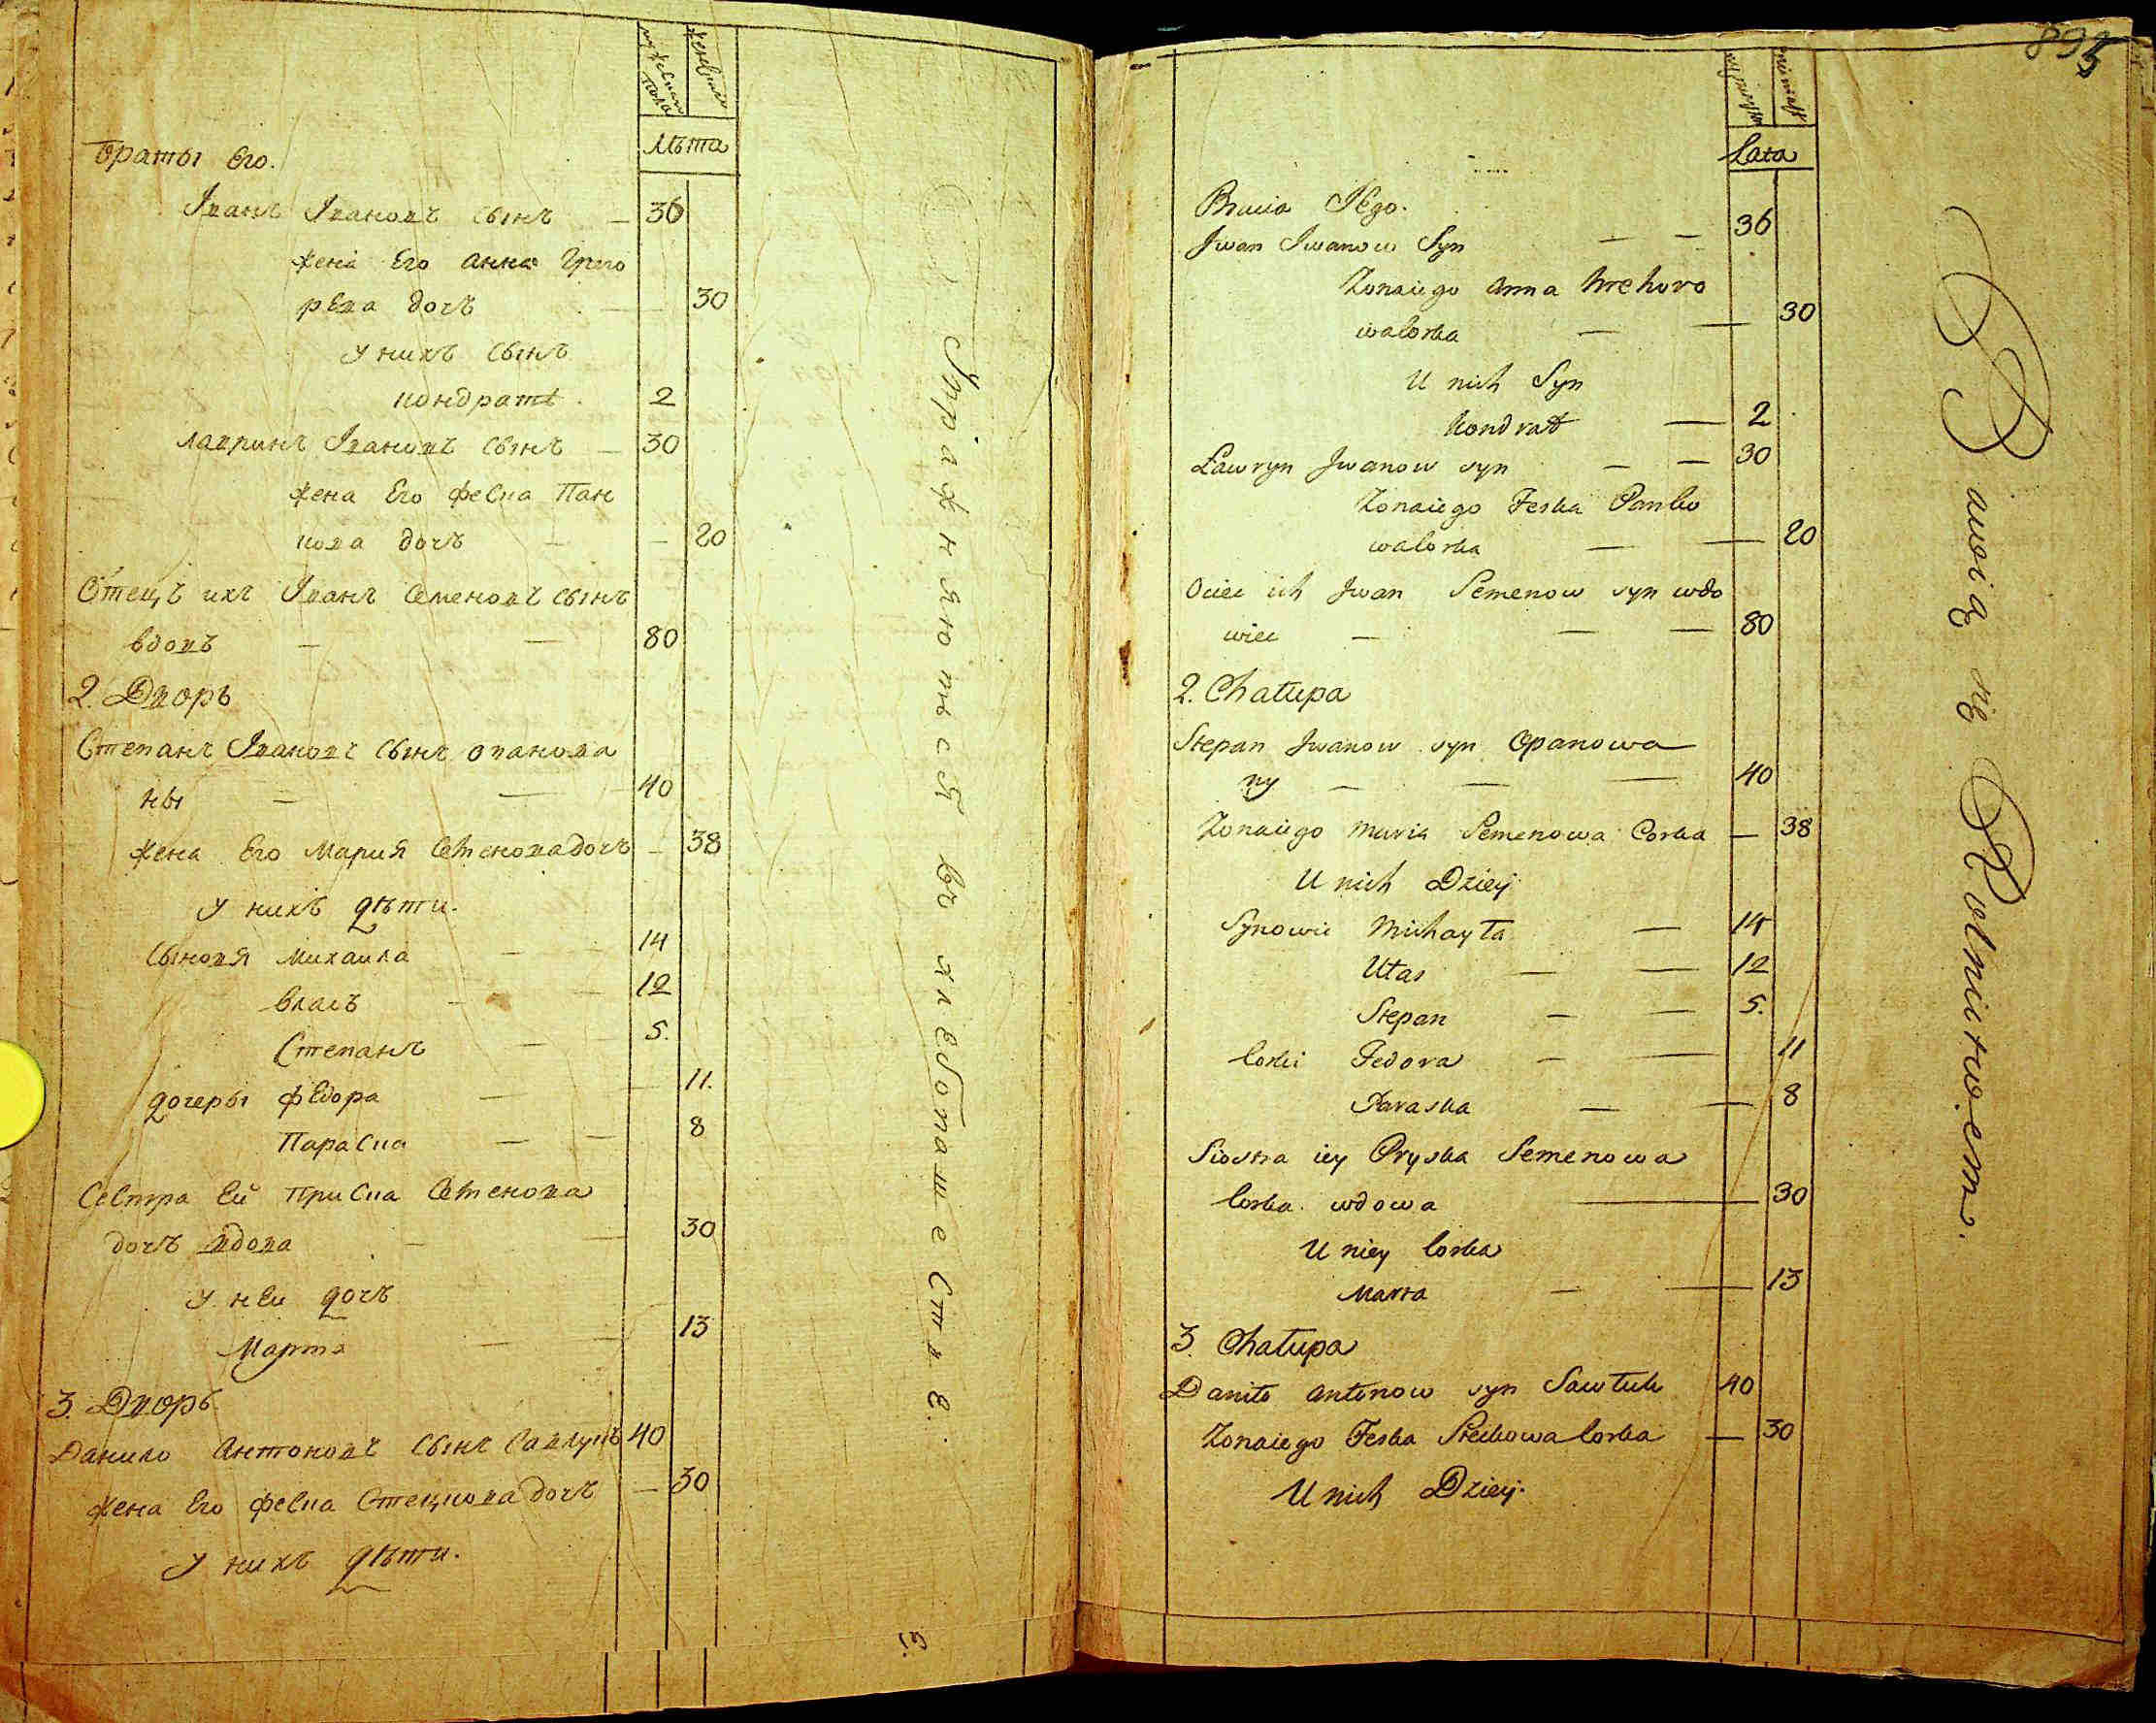 мужеска пола
женска
Лѣта
браты Его.
Іванъ Івановъ сынъ — 36
жена Его анна Грего
рева дочъ — 30
у нихъ сынъ
кондратъ. 2
лавринъ Івановъ сынъ — 30
жена Его феска Пан
кова дочъ — — 20
Отецъ ихъ Іванъ Семеновъ сынъ
вдовъ — — 80
2. Дворъ
Степанъ Івановъ сынъ опанова
ны — — 40
жена Его Мария Семенова дочъ — 38
у нихъ дѣти.
сыновя михаила — 14
власъ — 12
Степанъ — 5.
дочеры федора — — 11.
Параска — — 8
Сестра Ей приска Семенова
дочъ вдова — — 30
у неи дочъ
Марта — — 13
3. Дворъ
Данило Антоновъ сынъ савлукъ 40
жена Его феска Стецкова дочъ — 30
у нихъ дѣти.
Упражняются въ хлебопашестве.
895
Lata
Bracia Jego.
Jwan Jwanow Syn — — 36
Zona iego anna hrehoro
wa Corka — — 30
U nich Syn
Kondrat — 2
Ławryn Jwanow syn — — 30
Zona iego Feska Panko
wa Corka — — 20
Ociec ich Jwan Semenow syn wdo
wiec — — — 80
2. Chałupa
Stepan Jwanow syn Opanowa
ny — — — 40
Zona iego Maria Semenowa Corka — 38
U nich Dzieij
Synowie Michayła — 14
Ułas — — 12
Stepan — — 5.
Corki Fedora — — 11
Paraska — — 8
Siostra iey Pryska Semenowa
Corka wdowa — 30
U niey Corka
Marta — — 13
3. Chałupa
Daniło antonow syn Sawłuk 40
Zona iego Feska Steckowa Corka — 30
U nich Dzieij.
Bawią się Rolnictwem.